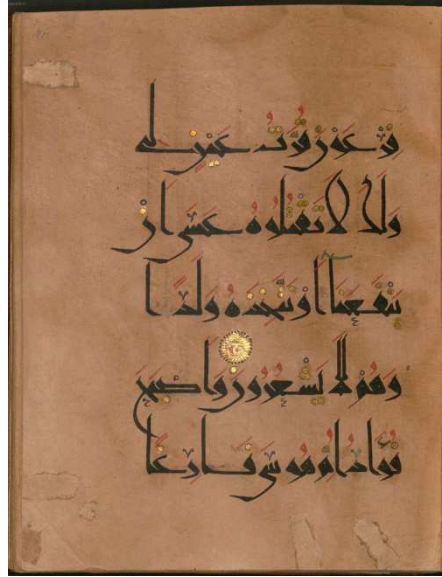 فرعون قرت عين لى
ولك لا تقتلوه عسى ان
ينفعنا او نتخذه ولدا
وهم لا يشعرون واصبح
فؤاد ام موسى فارغا